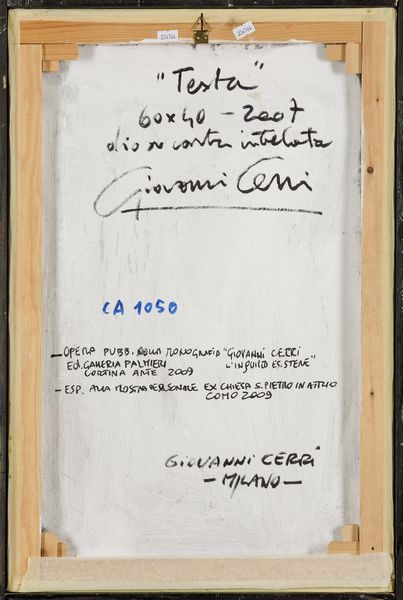 234744
234744
"Testa"
60x40 - 2007
olio su carta intelata
Giovanni Cerri
CA 1050
- OPERA PUBB. SULLA MONOGRAFIA "GIOVANNI CERRI
L'INQUIETO ESISTERE"
Ed. GALLERIA PALMIERI
CORTINA ARTE 2009
- ESP. ALLA MOSTRA PERSONALE EX CHIESA S. PIETRO IN ATRIO
COMO 2009
GIOVANNI CERRI
- MILANO -